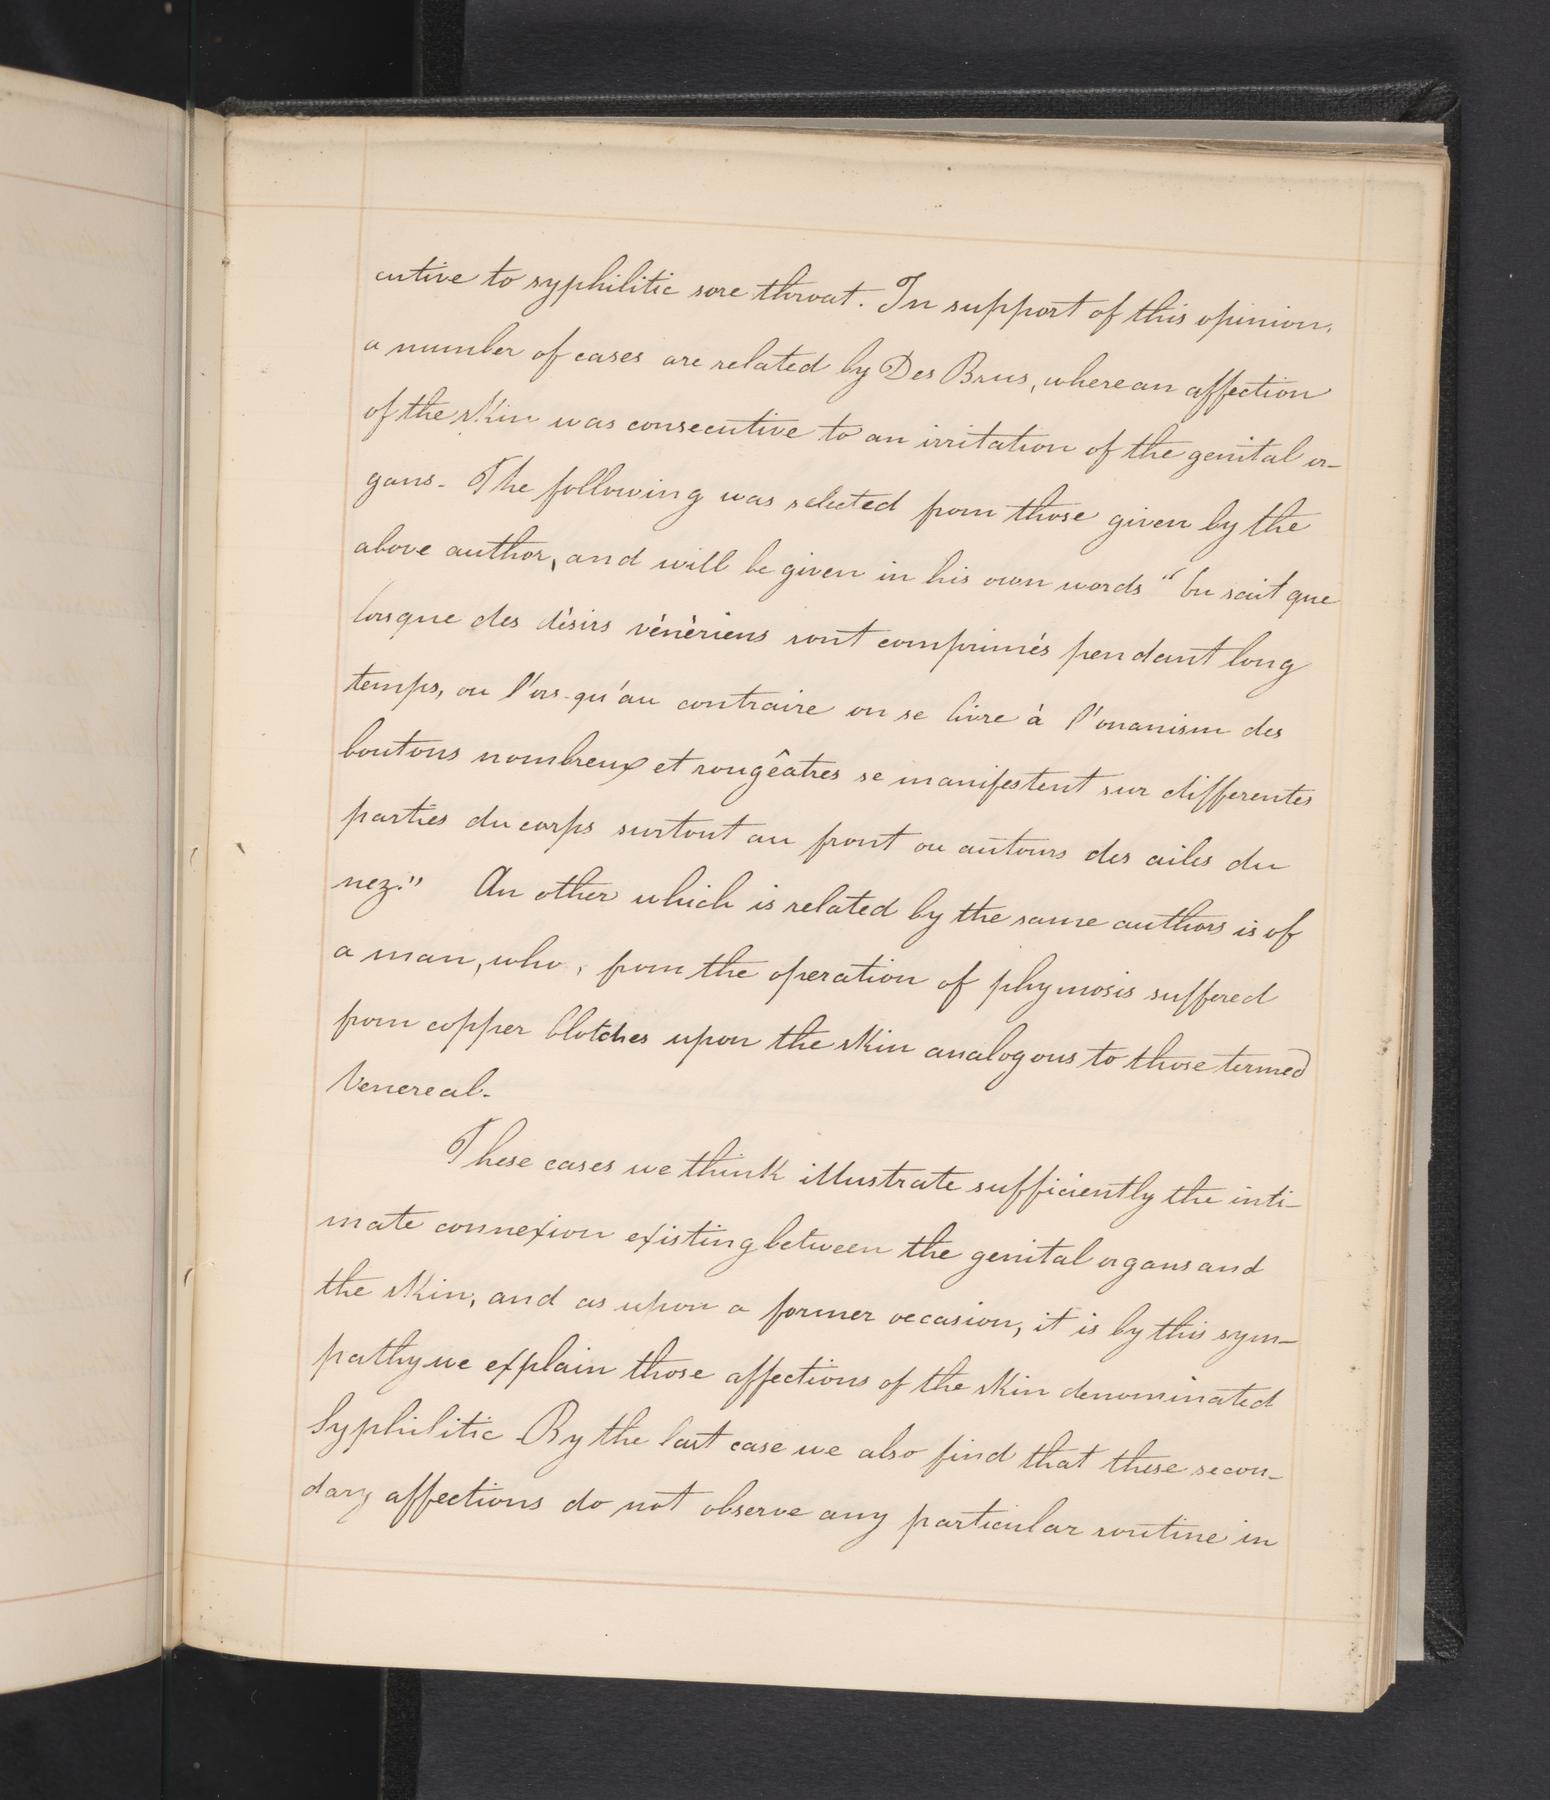 cutive to syphilitic sore throat. In support of this opinion,
a number of cases are related by Des Brus, where an affection
of the skin was consecutive to an irritation of the genital or-
gans. The following was selected from those given by the
above author, and will be given in his own words "On sait que
lorsque des désirs vénèriens sont comprimés pendant long
temps, ou l'ors-qu'au contraire on se livre à l'onanism des
boutons nombreux et rougêatres se manifestent sur differentes
parties du corps surtout au front ou autours des ailes du
nez." An other which is related by the same authors is of
a man, who, from the operation of phymosis suffered
from copper blotches upon the skin analogous to those termed
Venereal.
These cases we think illustrate sufficiently the inti-
mate connexion existing between the genital organs and
the skin, and as upon a former occasion, it is by this sym-
pathy we explain those affections of the skin denominated
Syphilitic By the last case we also find that these secon-
dary affections do not observe any particular routine in